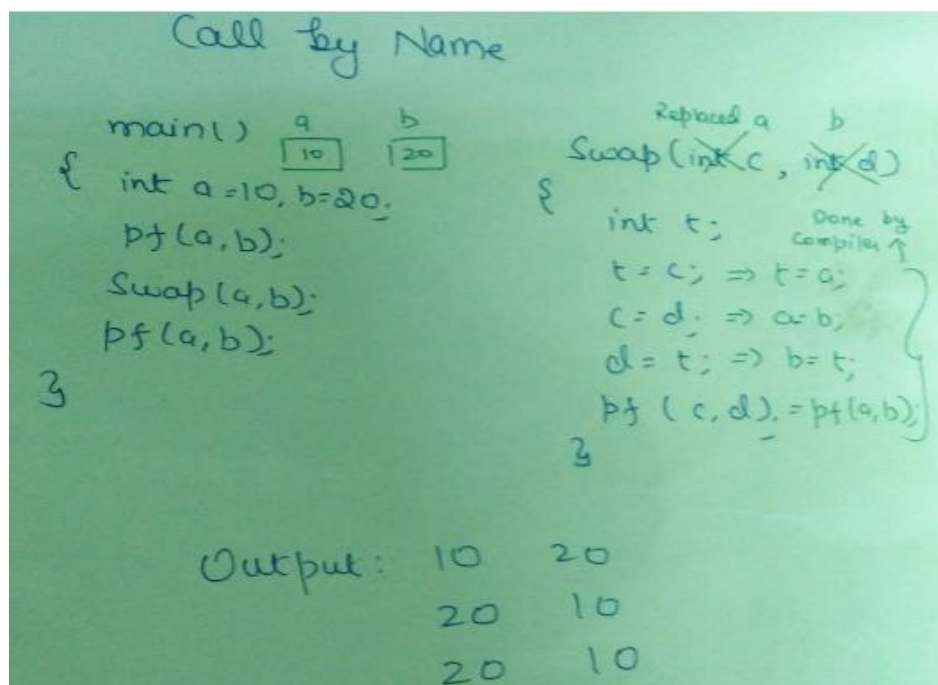 Call by Name
main()
a b
10 20
{ int a=10, b=20;
pf(a,b);
Swap(a,b);
pf(a,b);
}
Replaced a b
Swap(int c, int d)
{
int t;
Done by
Compiler ↑
t = c; ⇒ t = a;
c = d; ⇒ a = b;
d = t; ⇒ b = t;
pf (c,d); = pf(a,b);
}
Output: 10 20
20 10
20 10